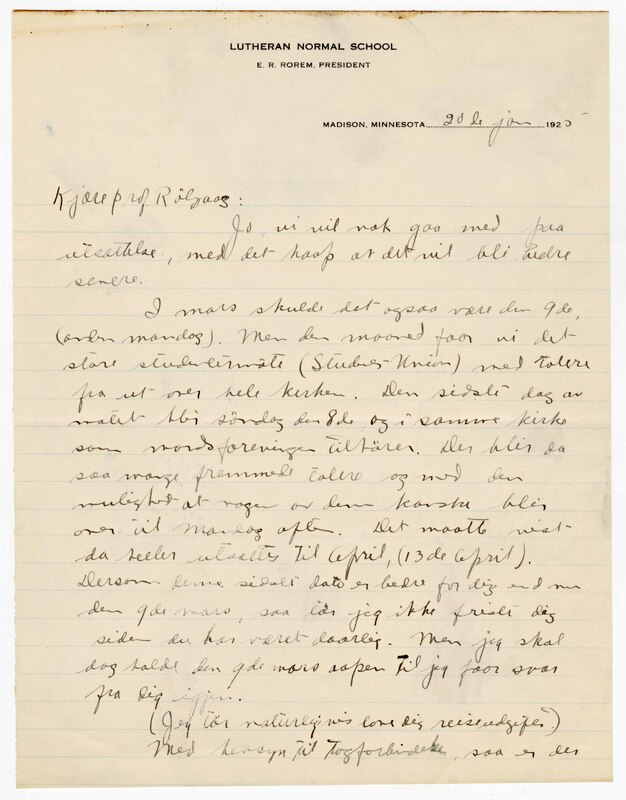 LUTHERAN NORMAL SCHOOL
E. R. ROREM, PRESIDENT
MADISON, MINNESOTA 20 de jan 1925
Kjære prof Rölvaag:
Jo, vi vil nok gaa med paa
utsættelse, med det haap at det vil bli bedre
senere.
I mars skulde det ogsaa være den 9de,
(anden mandag). Men den maaned faar vi det
store studentermöte (Studies Union) med talere
fra ut over hele kirken. Den sidste dag av
mötet bli söndag den 8de og i samme kirke
som mordsforeningen tilhörer. Der blir da
saa mange fremmede talere og med den
mulighed at nogen av dem kanske blir
over til Mandag aften. Det maatte vist
da heller utsættes til April, (13 de April).
Dersom denne sidste dato er bedre for dig end nu
den 9de mars, saa tör jeg ikke friste dig
siden du har været daarlig. Men jeg skal
dog holde den 9de mars aapen til jeg faar svar
fra dig igjen.
(Jeg tör naturligvis love dig reiseudgifter)
Med hensyn til togforbindelse, saa er der